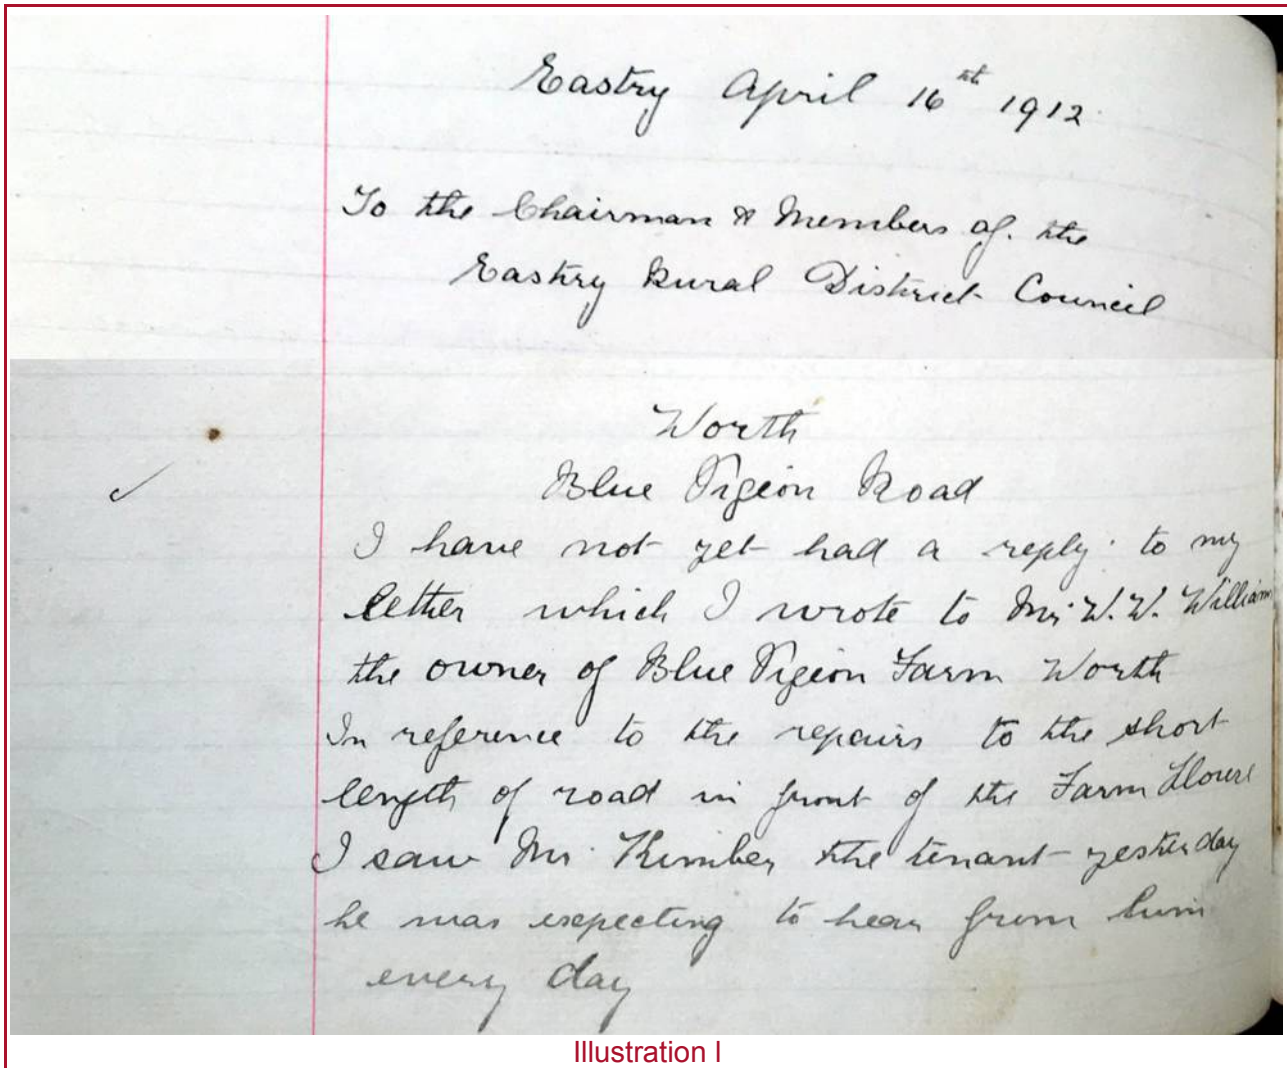 Eastry April 16th 1912
To the Chairman & Members of the
Eastry Rural District Council
Worth
Blue Pigeon Road
I have not yet had a reply to my
letter which I wrote to Mr W. W. William
the owner of Blue Pigeon Farm Worth
In reference to the repairs to the short
length of road in front of the Farm House
I saw Mr. Kimber the tenant yesterday
he was expecting to hear from him
every day
Illustration I